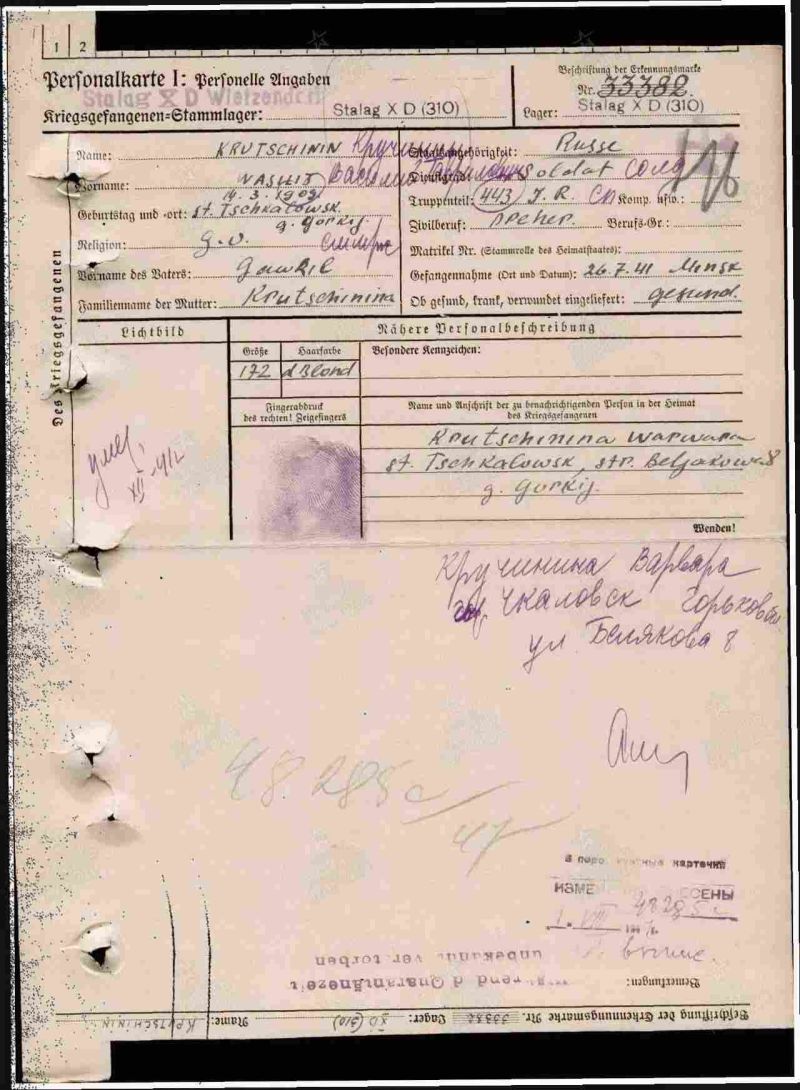 1 2
Personalkarte I: Personelle Angaben
Stalag X D Wietzendorf
Kriegsgefangenen-Stammlager: Stalag X D (310)
Beschriftung der Erkennungsmarke
Nr. 33382.
Lager: Stalag X D (310)
Des Kriegsgefangenen
Name: KRUTSCHININ Кручинин
Vorname: WASILIJ Василий
Geburtstag und -ort: 14.3.1909 st. Tschkalowsk
g. Gorkij.
Religion: g.o.
Vorname des Vaters: Gawril
Familienname der Mutter: Krutschinina
Staatsangehörigkeit: Russe
Dienstgrad: Soldat солд
Truppenteil: 443 J.R. СП Komp. usw.:
Zivilberuf: Berufs-Gr.:
Matrikel Nr. (Stammrolle des Heimatstaates):
Gefangennahme (Ort und Datum): 26.7.41 Minsk
Ob gesund, krank, verwundet eingeliefert: gesund.
Lichtbild
Nähere Personalbeschreibung
Größe Haarfarbe Besondere Kennzeichen:
172 d Blond
Fingerabdruck
des rechten! Zeigefingers
Name und Anschrift der zu benachrichtigenden Person in der Heimat
des Kriegsgefangenen
Krutschinina Warwara
st. Tschkalowsk, str. Beljakowa 8
g. Gorkij.
Wenden!
умер.
XII-41г
Кручинина Варвара
Чкаловск Горьковской
ул Белякова 8
48285с
47
карточки
48285с
unbekannt verstorben
während d Quarantänezeit
Bemerkungen:
Beschriftung der Erkennungsmarke Nr. 33382 Lager: XD (310) Name: KRUTSCHININ